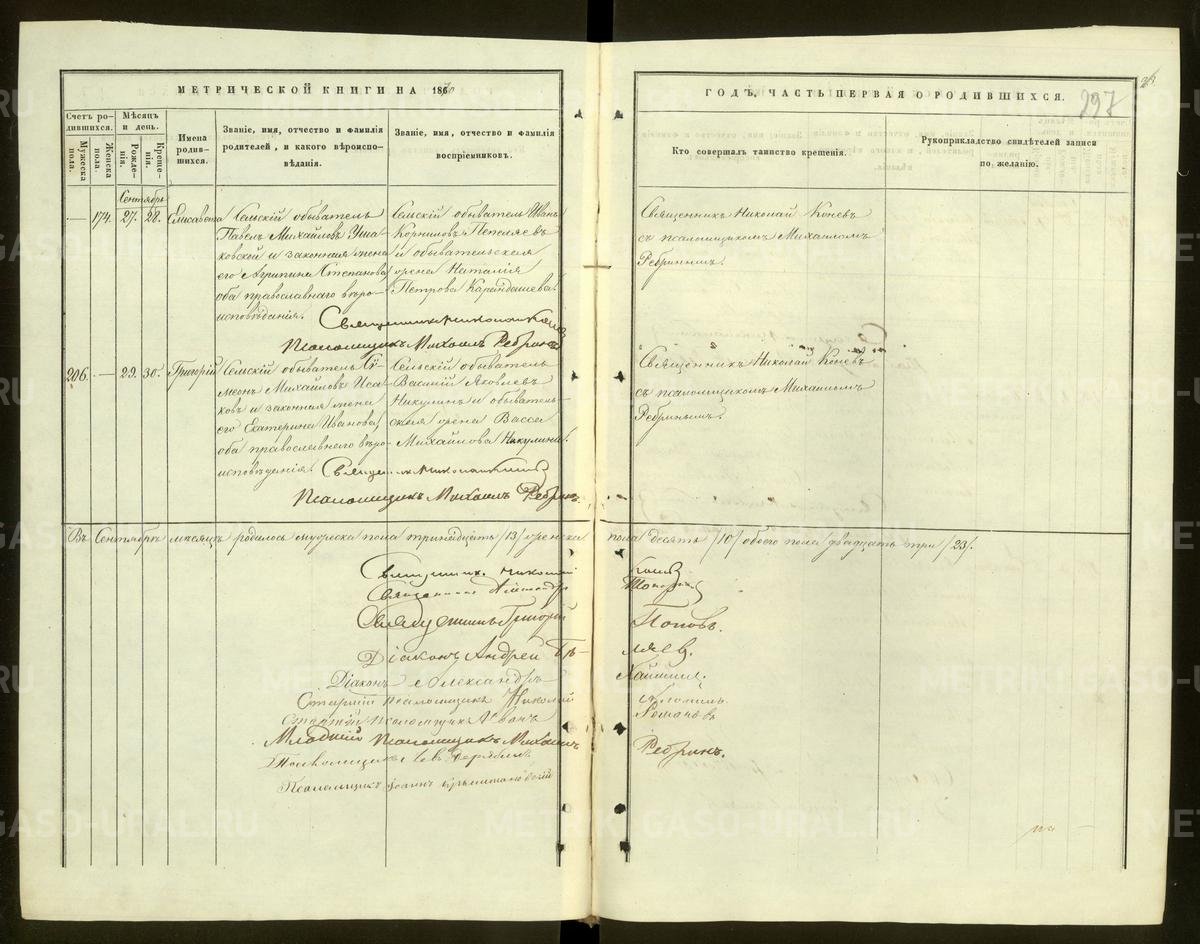 МЕТРИЧЕСКОЙ КНИГИ НА 1870
Счетъ родившихся.
Мужеска пола.
Женска пола.
Мѣсяцъ и день.
Рожденія.
Крещенія.
Имена родившихся.
Званіе, имя, отчество и фамилія
родителей, и какого вѣроиспо-
вѣданія.
Званіе, имя, отчество и фамилія
воспріемниковъ.
Сентябрь
174. 27. 28. Елисавета
Сельскій обыватель
Павелъ Михайловъ Уша-
ковской и законная жена
его Агрипина Степанова,
оба православнаго вѣро-
исповѣданія.
Сельскій обыватель Иванъ
Корниловъ Пепеляевъ
и обывательская
жена Наталія
Петрова Карандашева.
Священникъ Николай Коневъ
Псаломщикъ Михаилъ Ребринъ
206. — 29. 30. Григорій
Сельскій обыватель Си-
меонъ Михайловъ Иса-
ковъ и законная жена
его Екатерина Иванова,
оба православнаго вѣро-
исповѣданія.
Сельскій обыватель
Василій Яковлевъ
Никулинъ и обыватель-
ская жена Васса
Михайлова Никулина.
Священникъ Николай Коневъ
Псаломщикъ Михаилъ Ребринъ
Въ Сентябрѣ мѣсяцѣ родилось мужеска пола тринадцать /13/ женска
Священникъ Николай
Священникъ
Священникъ Григорій
Діаконъ Андрей Бѣ-
Діаконъ Александръ
Старшій псаломщикъ Николай
Старшій псаломщикъ Иванъ
Младшій Псаломщикъ Михаилъ
Псаломщикъ
Псаломщикъ Іоаннъ
ГОДЪ, ЧАСТЬ ПЕРВАЯ О РОДИВШИХСЯ.
297
Кто совершалъ таинство крещенія.
Рукоприкладство свидѣтелей записи
по желанію.
Священникъ Николай Коневъ
съ псаломщикомъ Михаиломъ
Ребринымъ.
Священникъ Николай Коневъ
съ псаломщикомъ Михаиломъ
Ребринымъ.
пола десять /10/ обоего пола двадцать три /23/.
Коневъ
Поповъ.
ляев.
Ребринъ.
METRIKI.GASO-URAL.RU